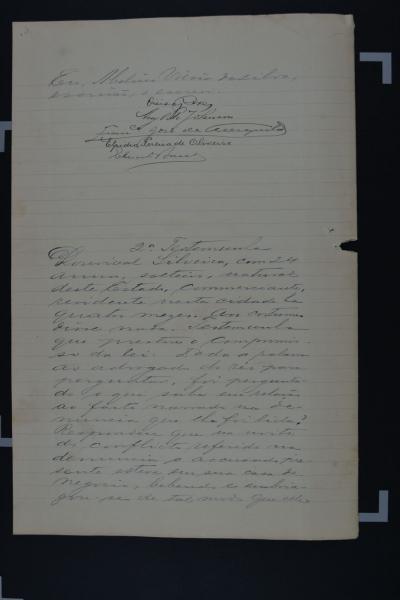 Eu, Abelino Vieira da Silva,
escrivão, o escrevi.
Franco José de Cerqueira
Elpidio Pereira de Oliveira
2ª Testemunha
Lourival Silveira, com 24
annos, solteiro, natural
deste Estado, Commerciante,
residente nesta cidade ha
quatro mezes. Aos costumes
disse nada. Testemunha
que prestou o compromis-
so da lei. Dada a palavra
ao advogado do réo para
perguntar, foi pergunta-
do o que sabe em relação
ao facto narrado na de-
nuncia que lhe foi lida?
Respondeu que na noite
do conflicto referido na
denuncia o accusado pre-
sente esteve em sua casa de
negocio, bebendo e embria-
gou-se de tal modo que elle